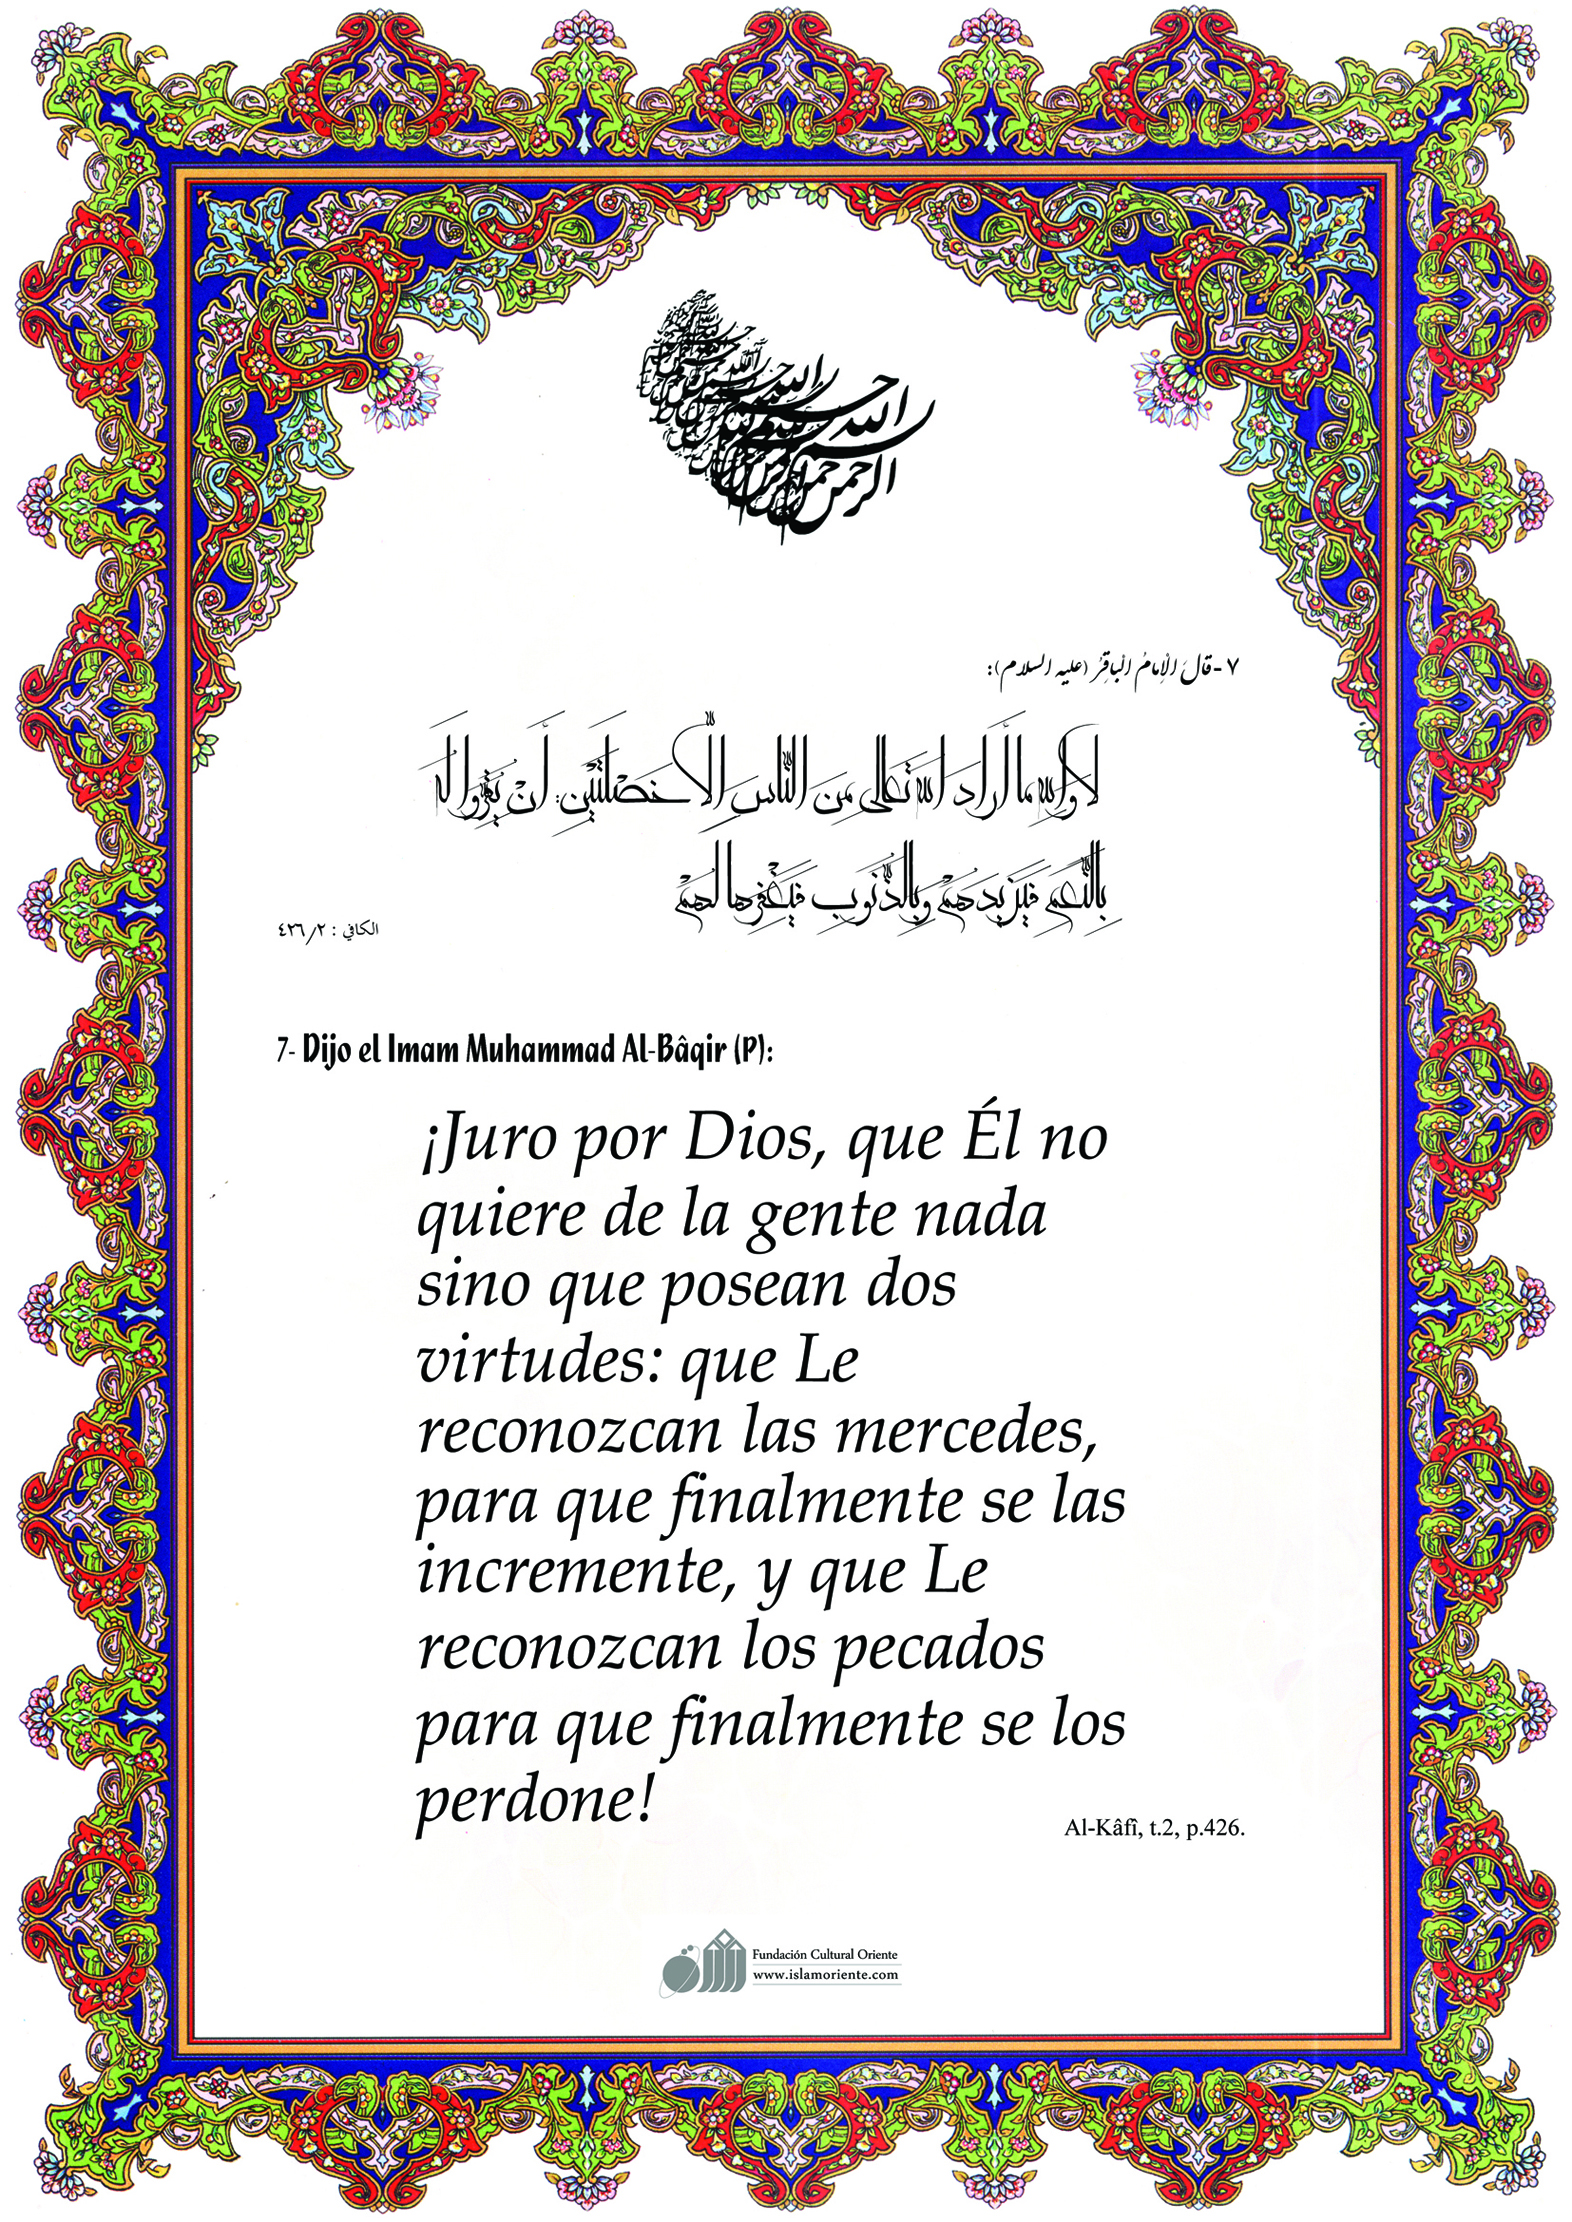 بسم الله الرحمن الرحيم
٧-قالَ الْإمامُ الْباقِرُ (عليه السلام):
لا وَاللهِ ما أَرادَ اللهُ تَعالى مِنَ النّاسِ إلّا خَصْلَتَيْنِ: أَنْ يُقِرُّوا لَهُ
بِالنِّعَمِ فَيَزيدَهُمْ وَبِالذُّنُوبِ فَيَغْفِرَها لَهُمْ
الكافي : ٤٢٦/٢
7- Dijo el Imam Muhammad Al-Bâqir (P):
¡Juro por Dios, que Él no
quiere de la gente nada
sino que posean dos
virtudes: que Le
reconozcan las mercedes,
para que finalmente se las
incremente, y que Le
reconozcan los pecados
para que finalmente se los
perdone!
Al-Kâfî, t.2, p.426.
Fundación Cultural Oriente
www.islamoriente.com